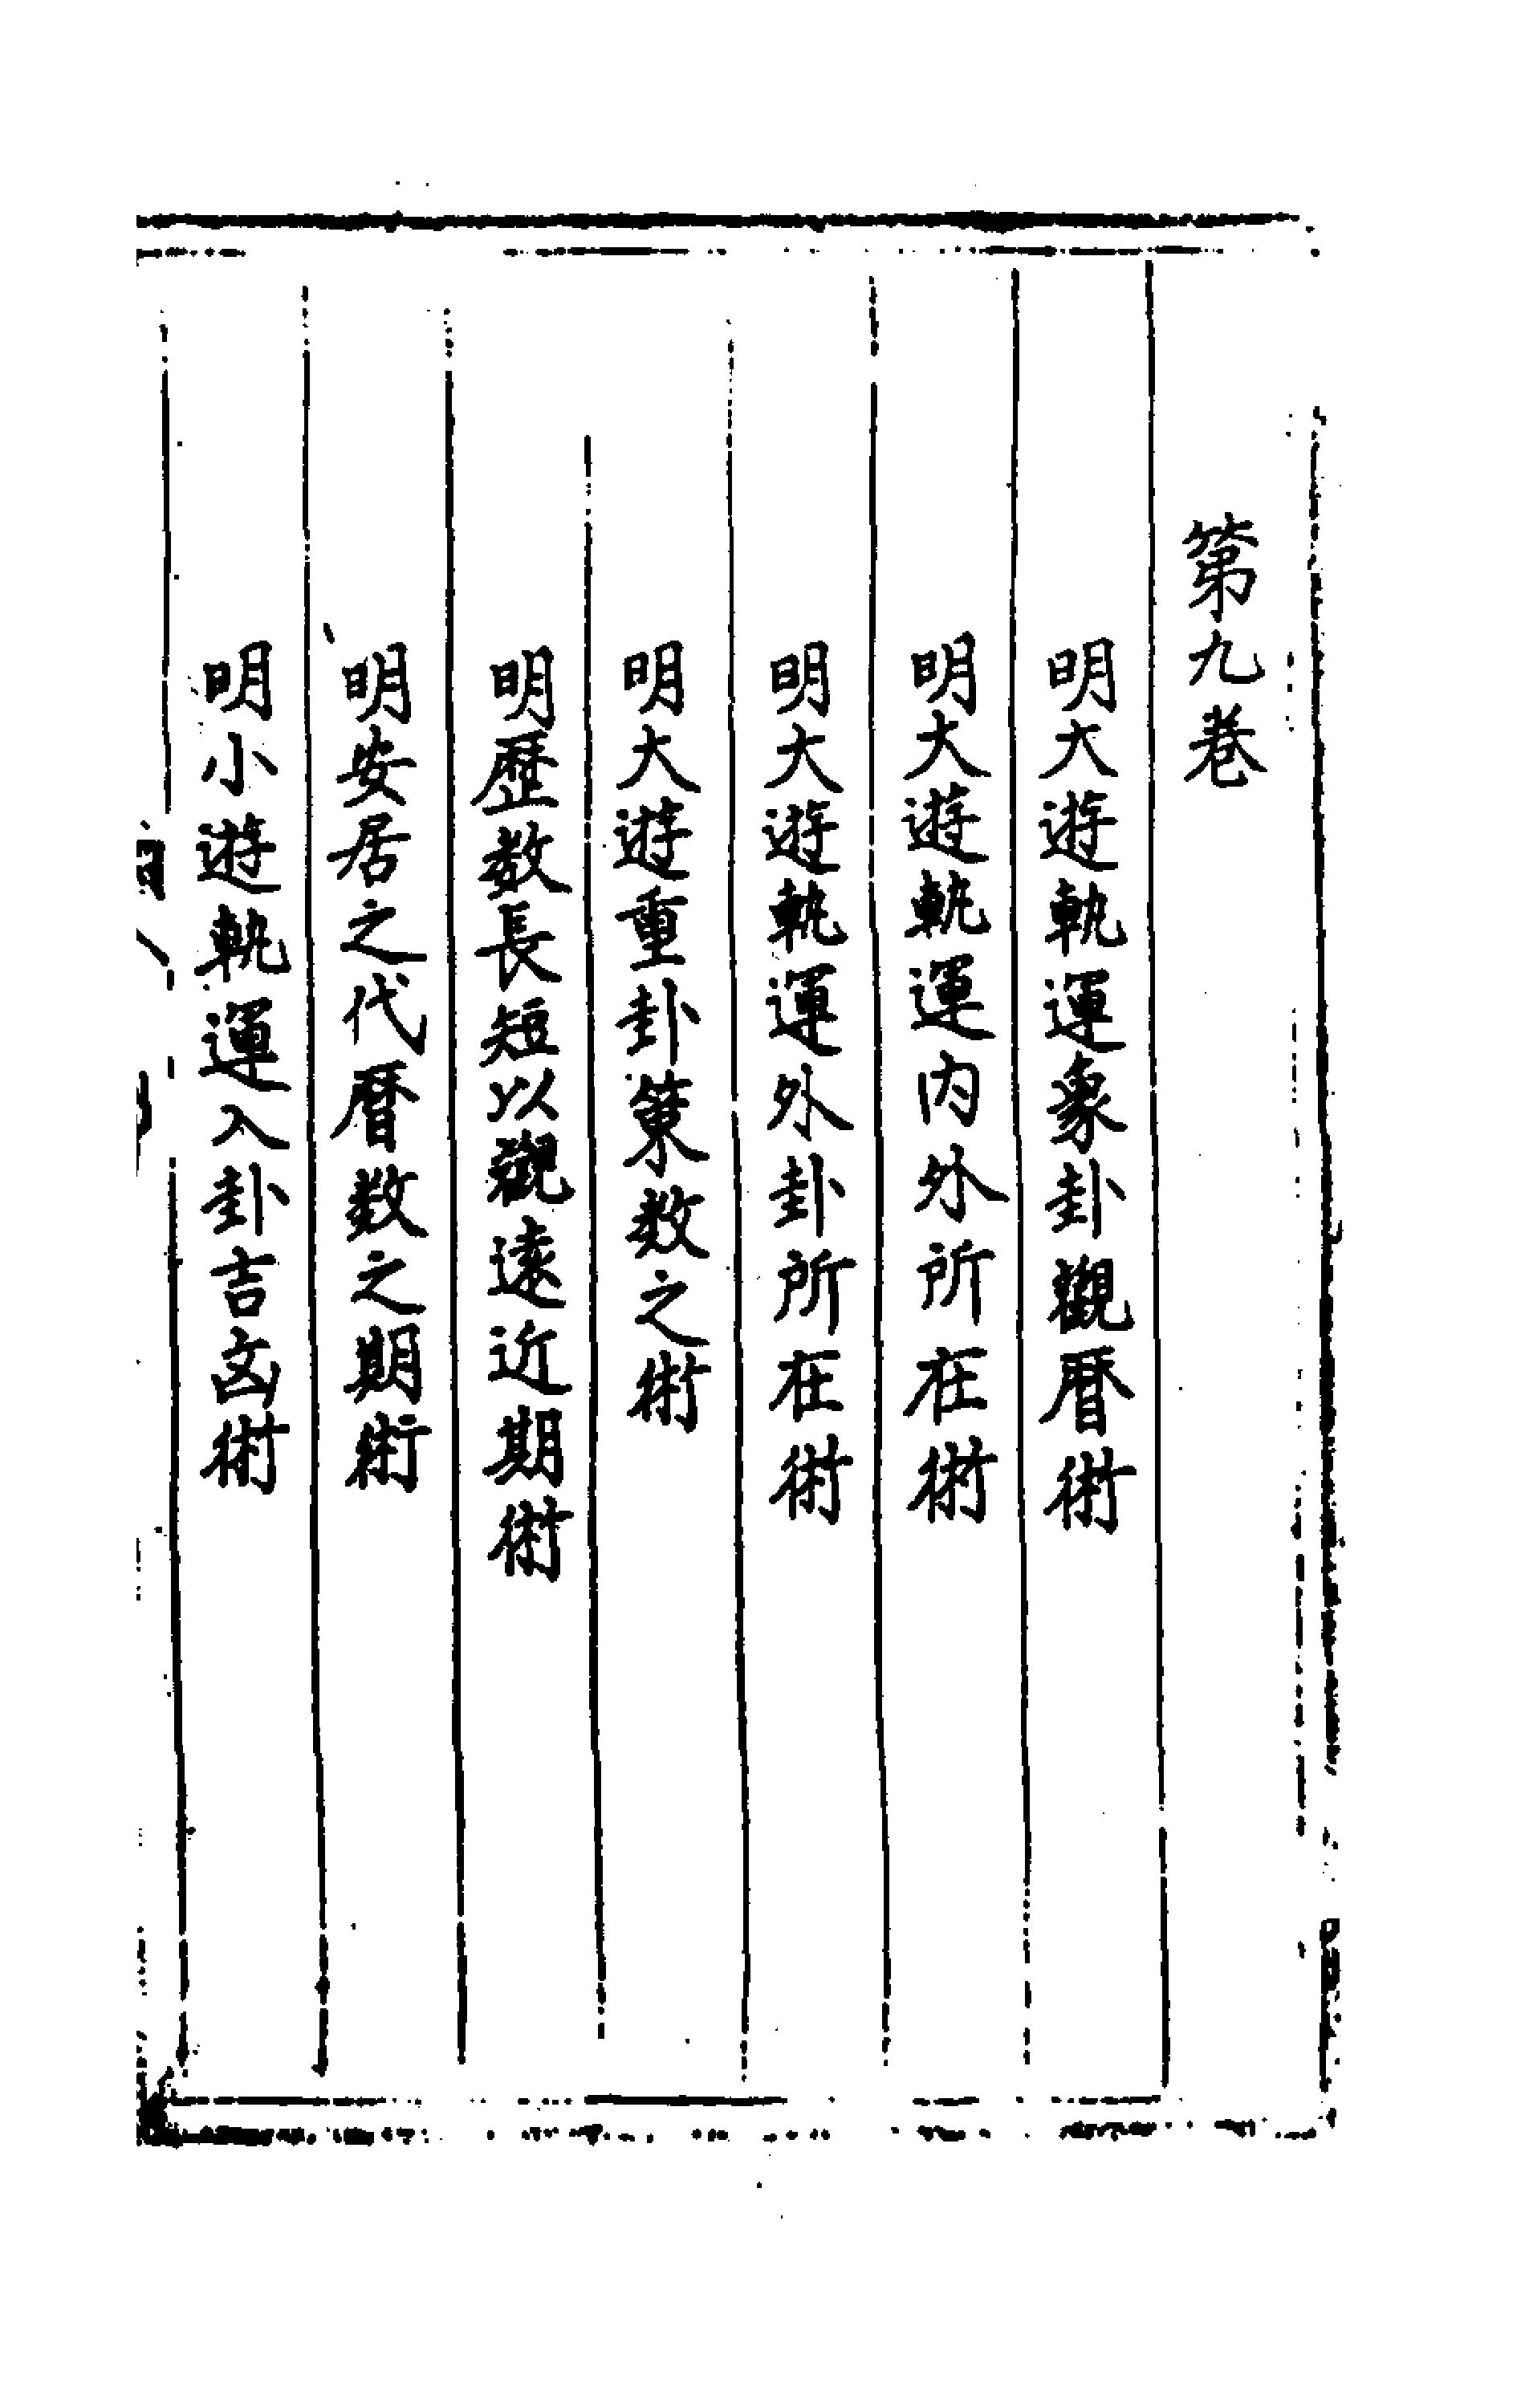 第九巻
明大遊軌運象卦觀曆術
明大遊軌運内外所在術
明大遊軌運外卦所在術
明大遊重卦策数之術
明歷数長短以觀遠近期術
明安居之代曆数之期術
明小遊軌運入卦吉凶術